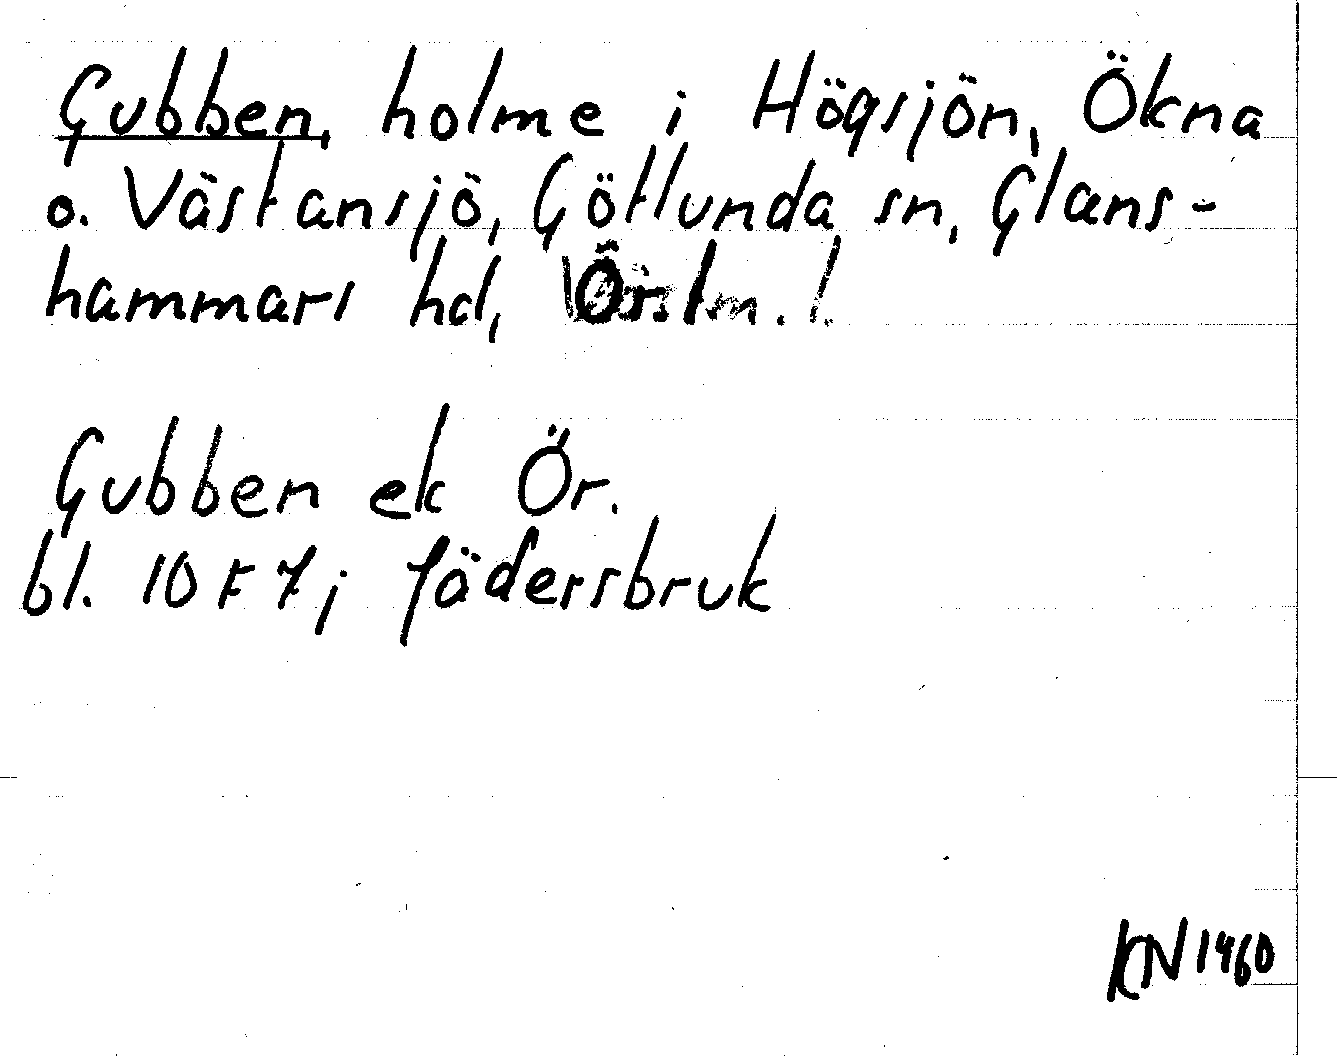 Gubben, holme i Högsjön, Ökna
o. Västansjö, Götlunda sn, Glans-
hammars hd, Ör. l.
Gubben ek Ör.
bl. 10 F 7 j Jädersbruk
KN 1960